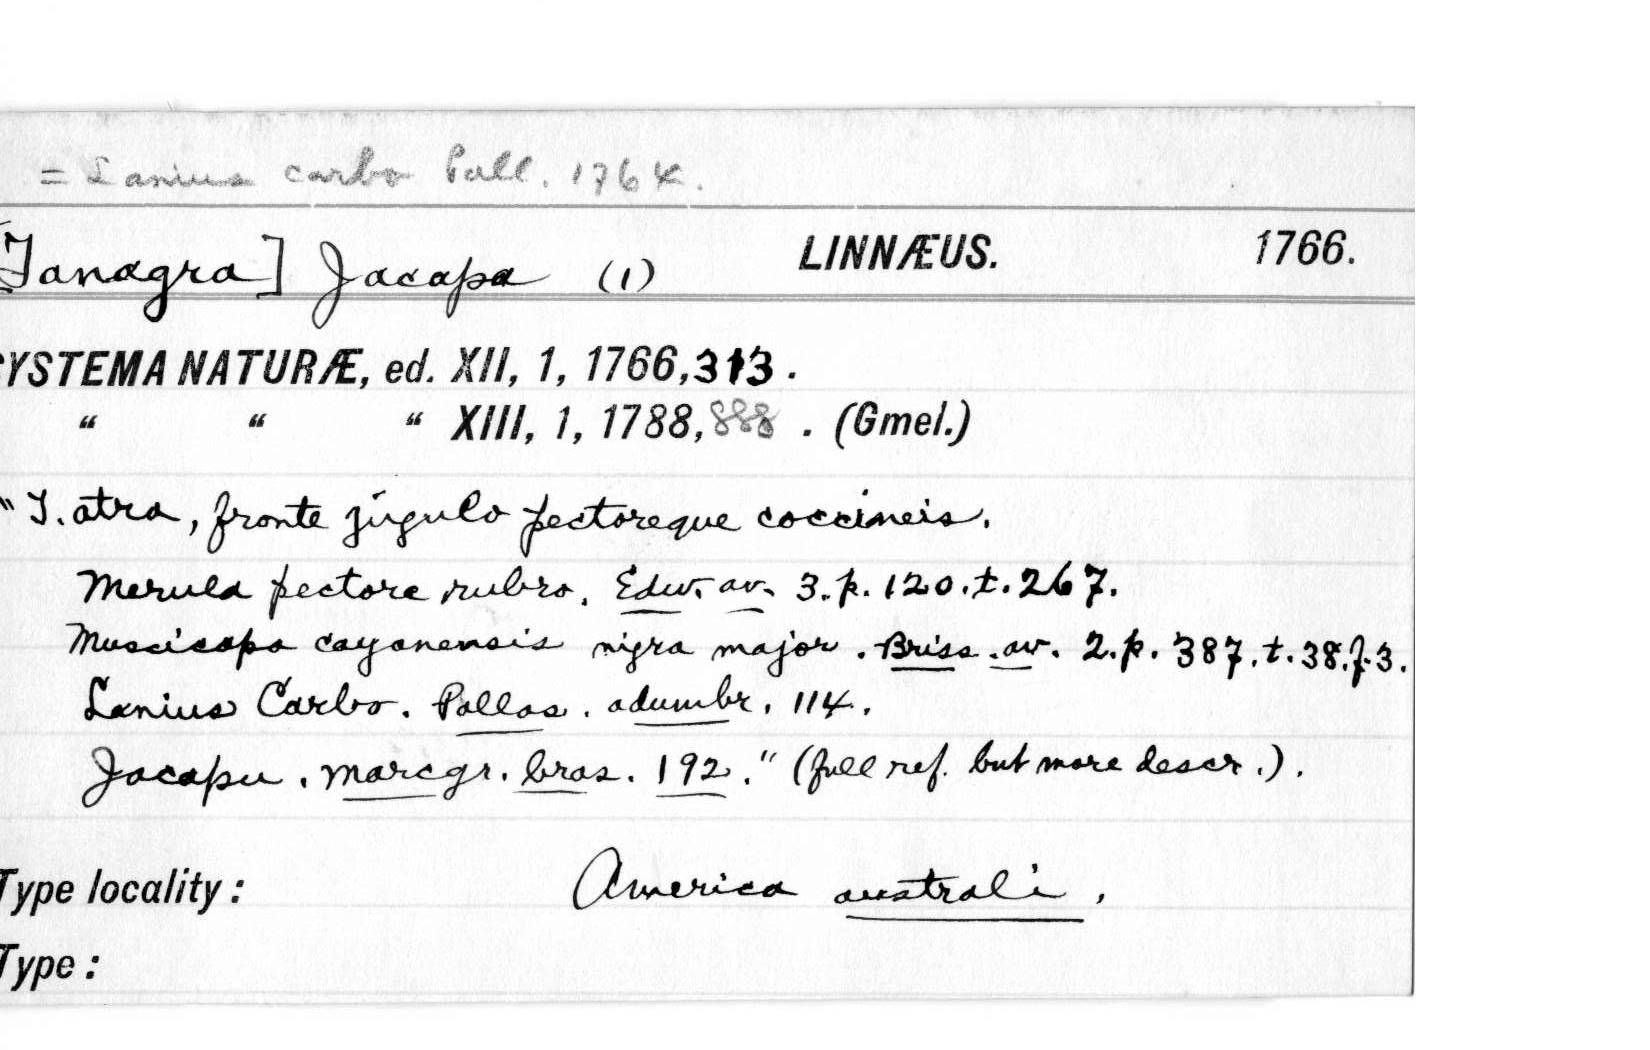 = Lanius carbo Pall. 1764.
[Tanagra] Jacapa (1) LINNÆUS. 1766.
SYSTEMA NATURÆ, ed. XII, 1, 1766, 313.
“ “ “ XIII, 1, 1788, 888. (Gmel.)
"T. atra, fronte jugulo pectoreque coccineis.
Merula pectore rubro. Edw. av. 3. p. 120. t. 267.
Muscicapa cayanensis nigra major. Briss. av. 2. p. 387. t. 38. f. 3.
Lanius Carbo. Pallas. adumbr. 114.
Jacapu. marcgr. bras. 192." (full ref. but more descr.).
Type locality: America australi.
Type: